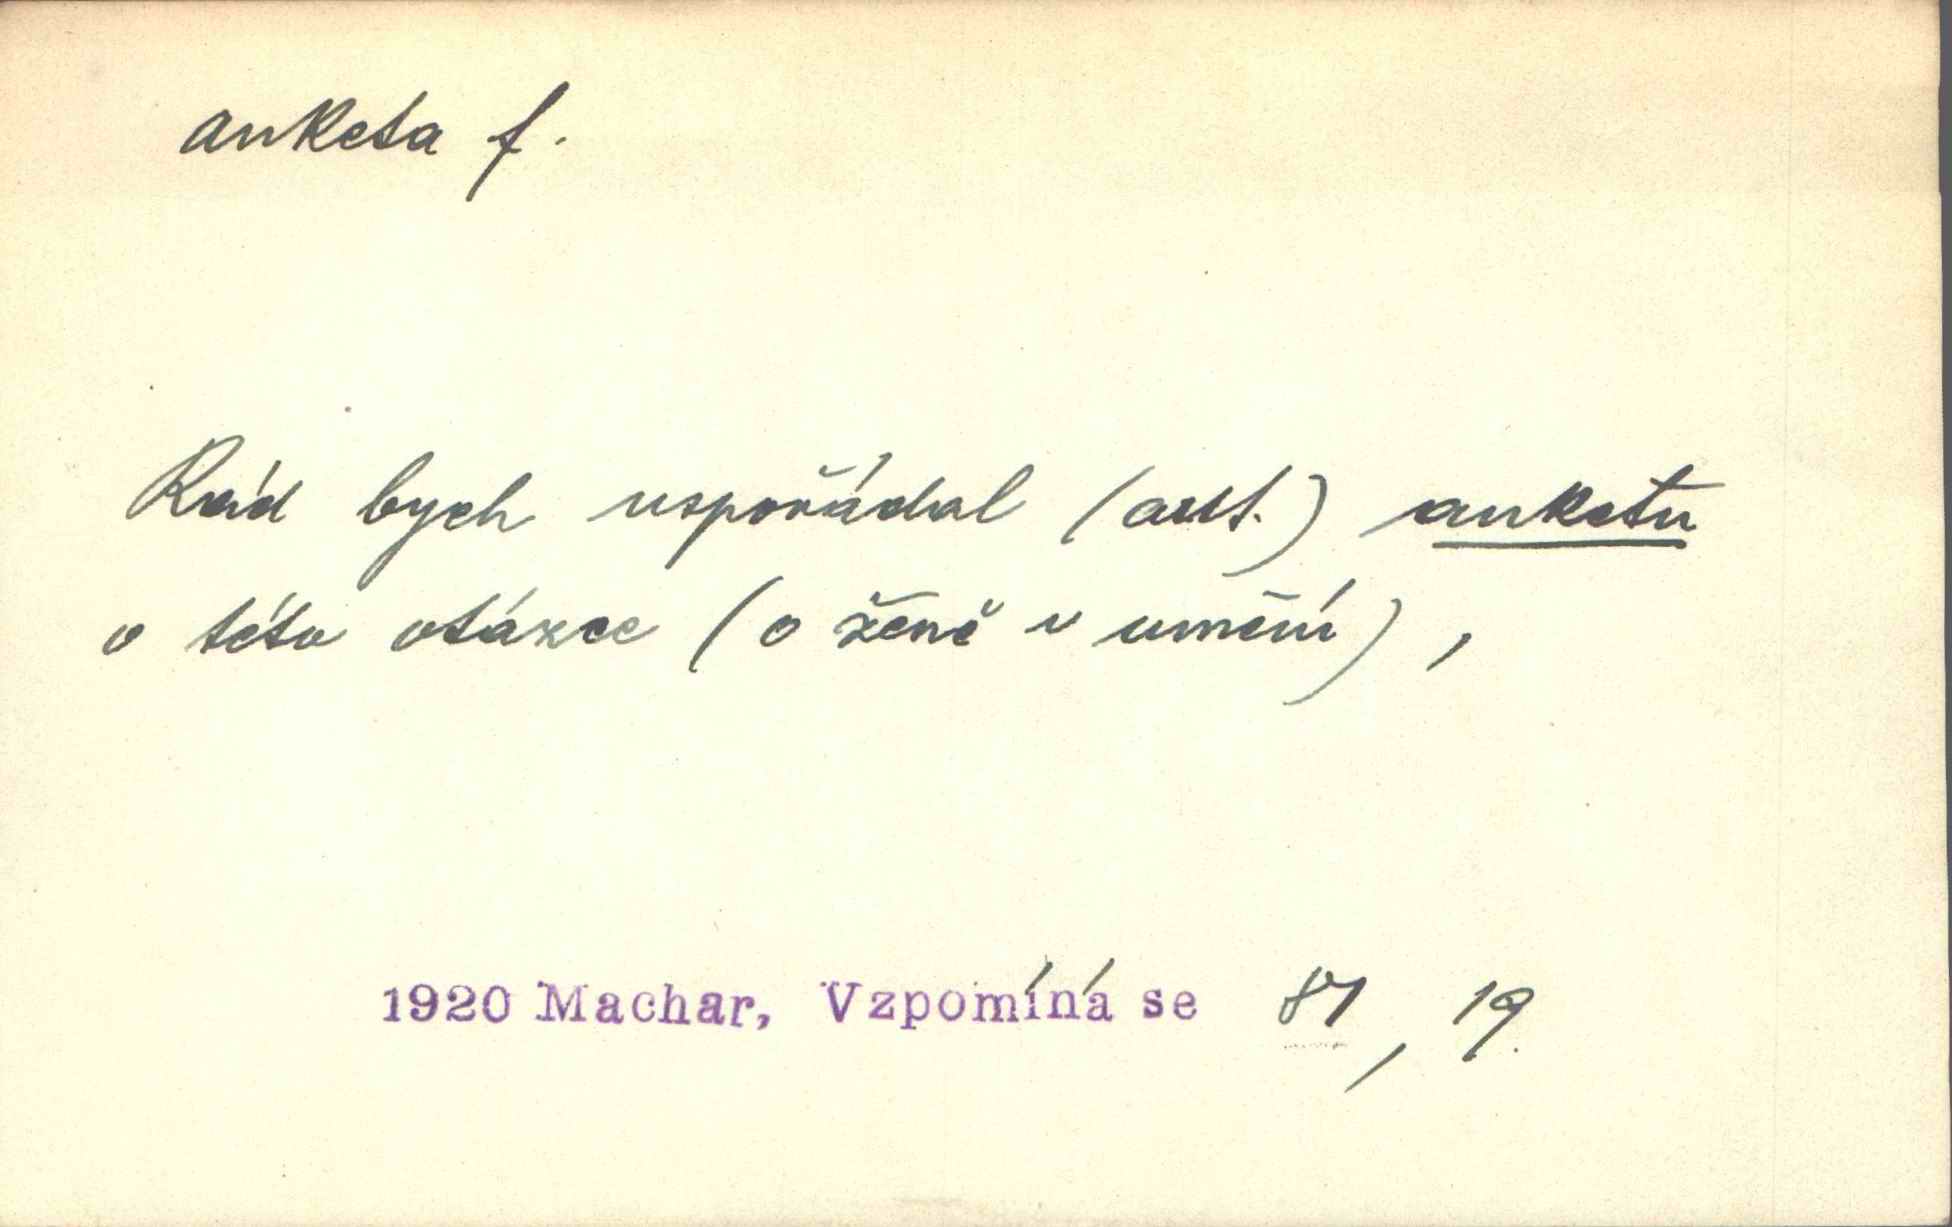 anketa f.
Rád bych uspořádal (aut.) anketu
o této otázce (o ženě v umění),
1920 Machar, Vzpomíná se 81, 19.